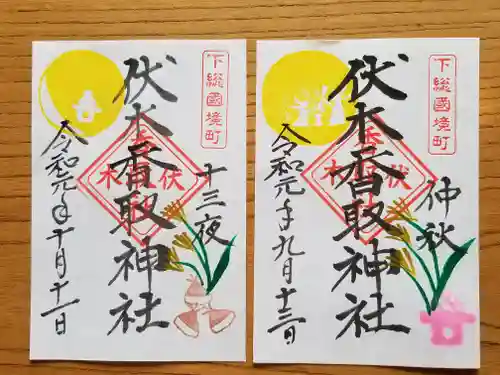 下総國境町
伏木香取神社
十三夜
令和元年十月十一日
下総國境町
伏木香取神社
仲秋
令和元年九月十三日